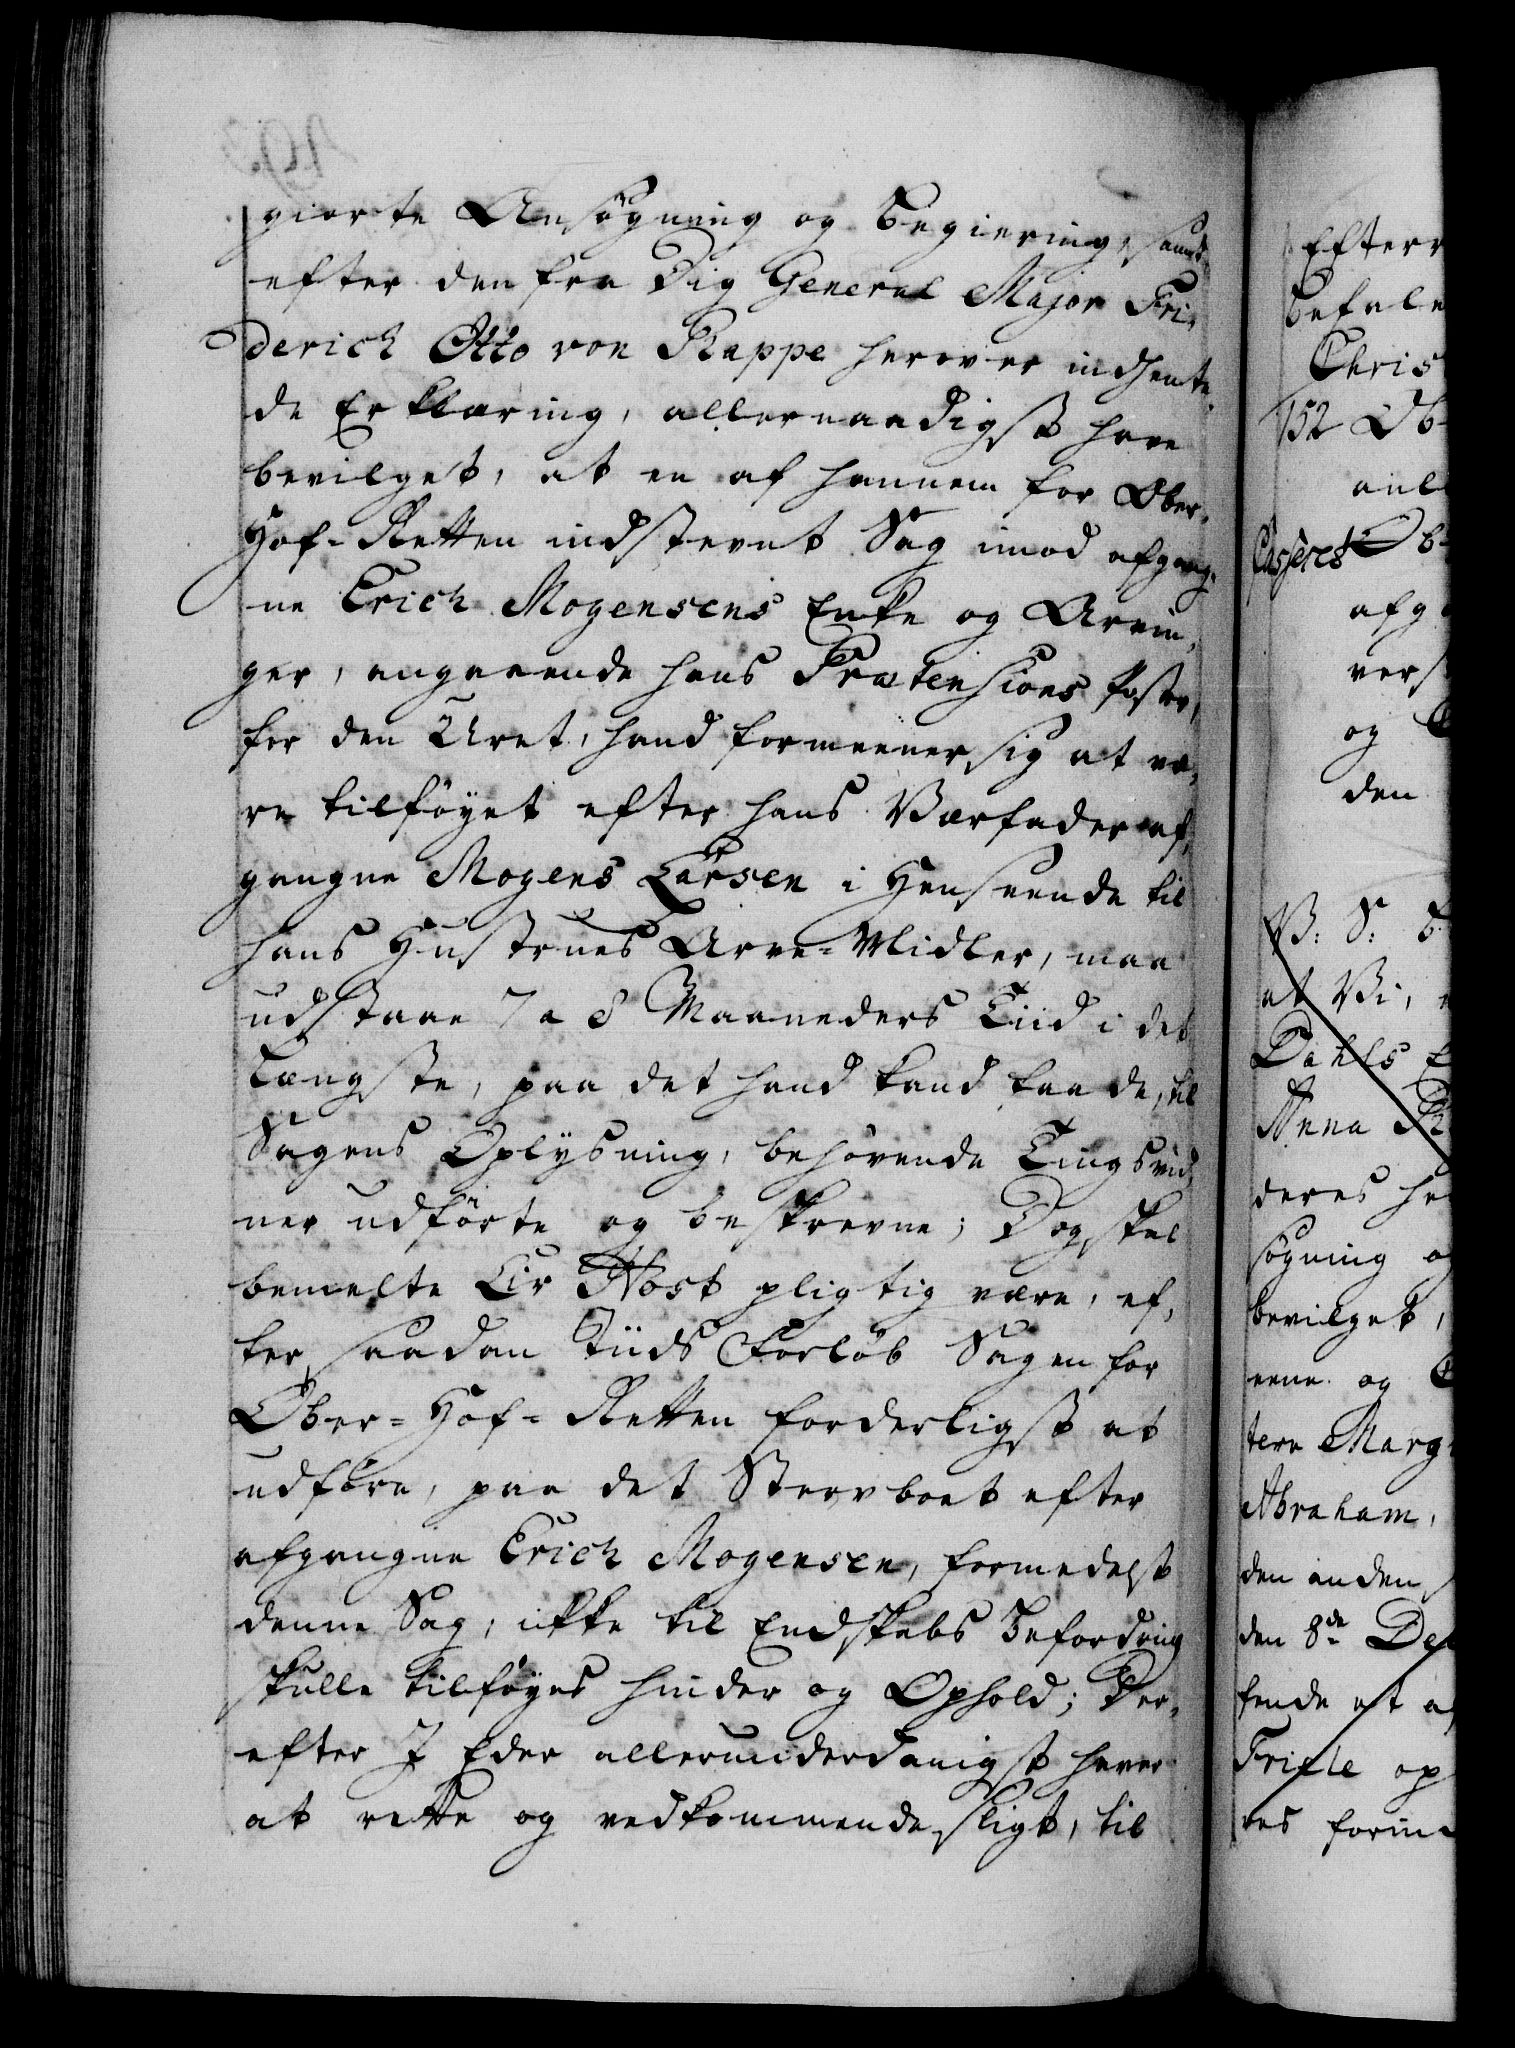 giorte Ansøgning og begiering, samt
efter den fra Dig General Major Fri-
derich Otto von Rappe herover indhente-
de Erklæring, allernaadigst have
bevilget, at en af hannem for Ober-
Hof-Retten indstevnt Sag imod afgang-
ne Erich Mogensens Enke og Arvin-
ger, angaaende hans Prætensions Poster,
for den Uret, hand formeener sig at væ-
re tilføyet efter hans Værfader af-
gangne Mogens Larsen i Henseende til
hans Hustrues Arve-Midler, maa
udstaae 7 a 8 Maaneders Tiid i det
Længste, paa det hand kand faa de, til
Sagens Oplysning, behøvende Tingsvid-
ner udførte og beskrevne; Dog skal
bemelte Lir Nost pligtig være, ef-
ter saadan Tiids Forløb Sagen for
Ober-Hof-Retten forderligst at
udføre, paa det Stervboet efter
afgangne Erich Mogensen, formedelst
denne Sag, ikke til Endskabs Befordring
skulle tilføyes hinder og Ophold; Der-
efter I Eder allerunderdanigst haver
at rette og vedkommende sligt, til
Efterr
befale
Chris
152 Ob
anl
Casseres Ob
afg
vers
og
den
V: S: b
at Vi,
Dahls E
Anna
deres he
søgning og
bevilget,
eene og
tere Marg
Abraham,
den anden
den 8de De
kende at a
Fridle op
res form